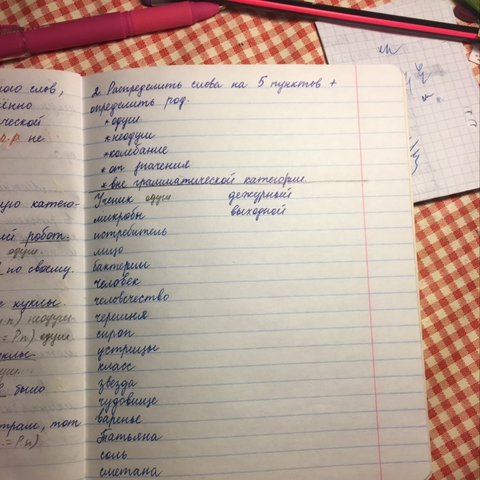 ного слов,
ённо
ической
р.р не
ую катего-
ий робот.
одуш.
по своему.
с куклы.
п) неодуш
= Рп) одуш
куклы
было
трам, тот
= Рп)
2. Распределить слова на 5 пунктов +
определить род.
*одуш.
*неодуш
*колебание
*от значения
*вне грамматической категории
Ученик одуш дежурный
микробы выходной
истребитель
лицо
бактерии
человек
человечество
черешня
сироп
устрицы
класс
звезда
чудовище
варенье
Татьяна
соль
сметана